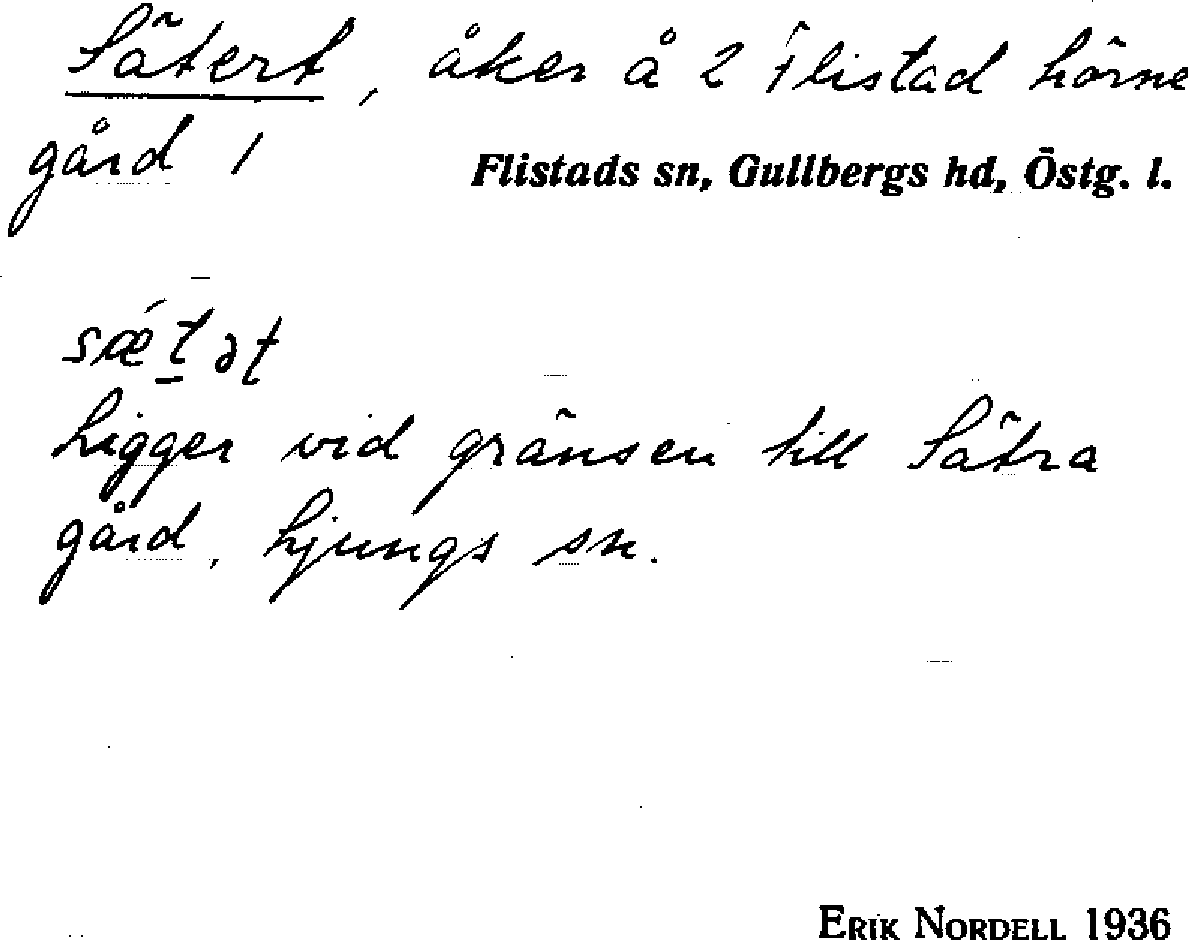 Sätert, åker å 2 Flistad Hörne
gård 1
Flistads sn, Gullbergs hd, Östg. l.
sǽt̲ət
Ligger vid gränsen till Sätra
gård, Ljungs sn.
ERIK NORDELL 1936